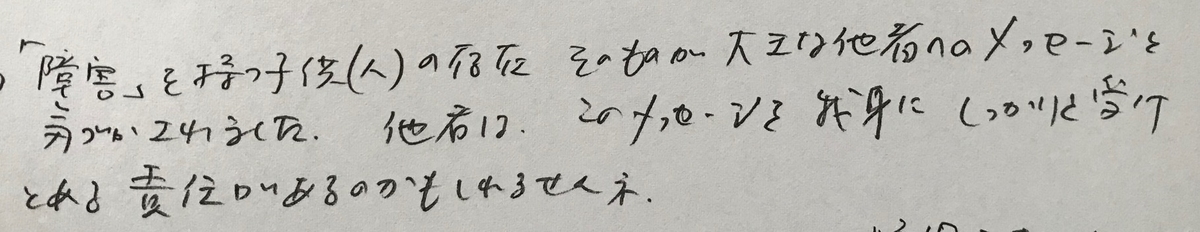 「障害」を持つ子供(人)の存在そのものが大きな他者へのメッセージと
気づかされました. 他者は. このメッセージを我身にしっかりと受け
とめる責任があるのかもしれませんネ.